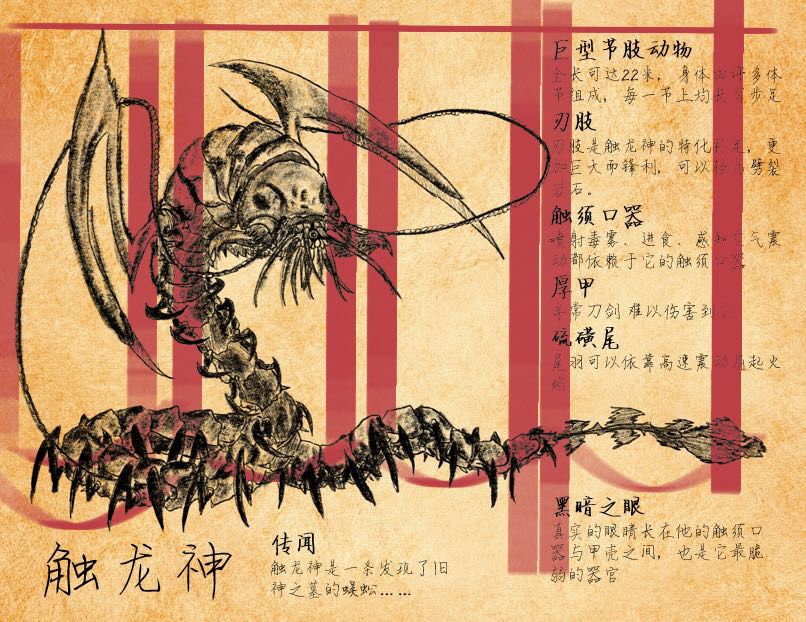 巨型节肢动物
全长可达22米，身体由许多体
节组成，每一节上均长有步足
刃肢
刃肢是触龙神的特化步足，更
加巨大而锋利，可以轻易劈裂
岩石。
触须口器
喷射毒雾、进食、感知空气震
动都依赖于它的触须口器
厚甲
寻常刀剑难以伤害到它
硫磺尾
尾羽可以依靠高速震动点起火
焰
黑暗之眼
真实的眼睛长在他的触须口
器与甲壳之间，也是它最脆
弱的器官
触龙神
传闻
触龙神是一条发现了旧
神之墓的蜈蚣……